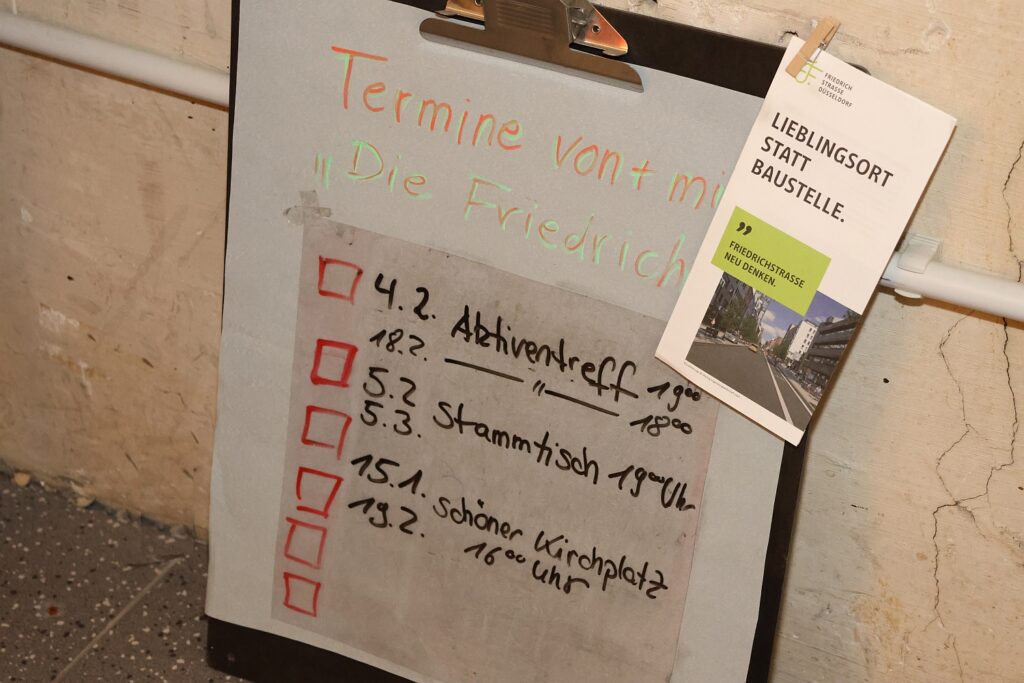 Termine von + mi
"Die Friedrich
4.2. Aktiventreff 19⁰⁰
18.2. — " — 18⁰⁰
5.2
5.3. Stammtisch 19⁰⁰ Uhr
15.1. schöner Kirchplatz
19.2. 16⁰⁰ Uhr
FRIEDRICH
STRASSE
DÜSSELDORF
LIEBLINGSORT
STATT
BAUSTELLE.
"
FRIEDRICHSTRASSE
NEU DENKEN.